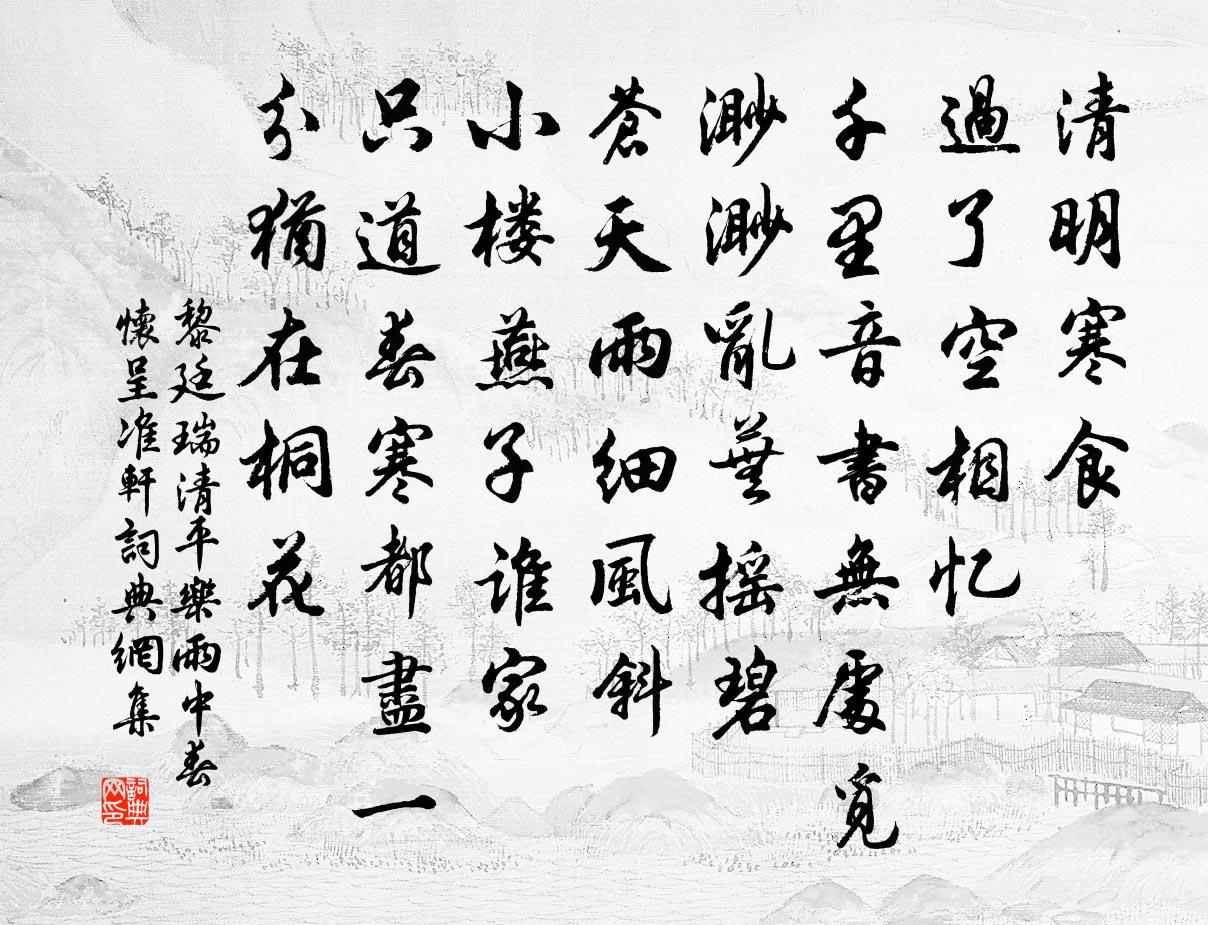 清明寒食
過了空相忆
千里音書無處覓
渺渺亂蕪摇碧
蒼天雨細風斜
小楼燕子谁家
只道春寒都盡一
分猶在桐花
黎廷瑞清平樂雨中春
懷呈准軒詞典網集
詞典
网印